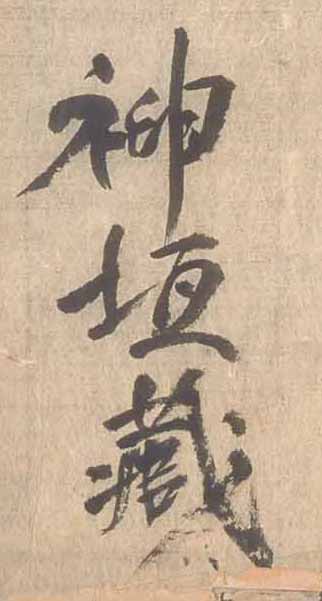 神垣藏